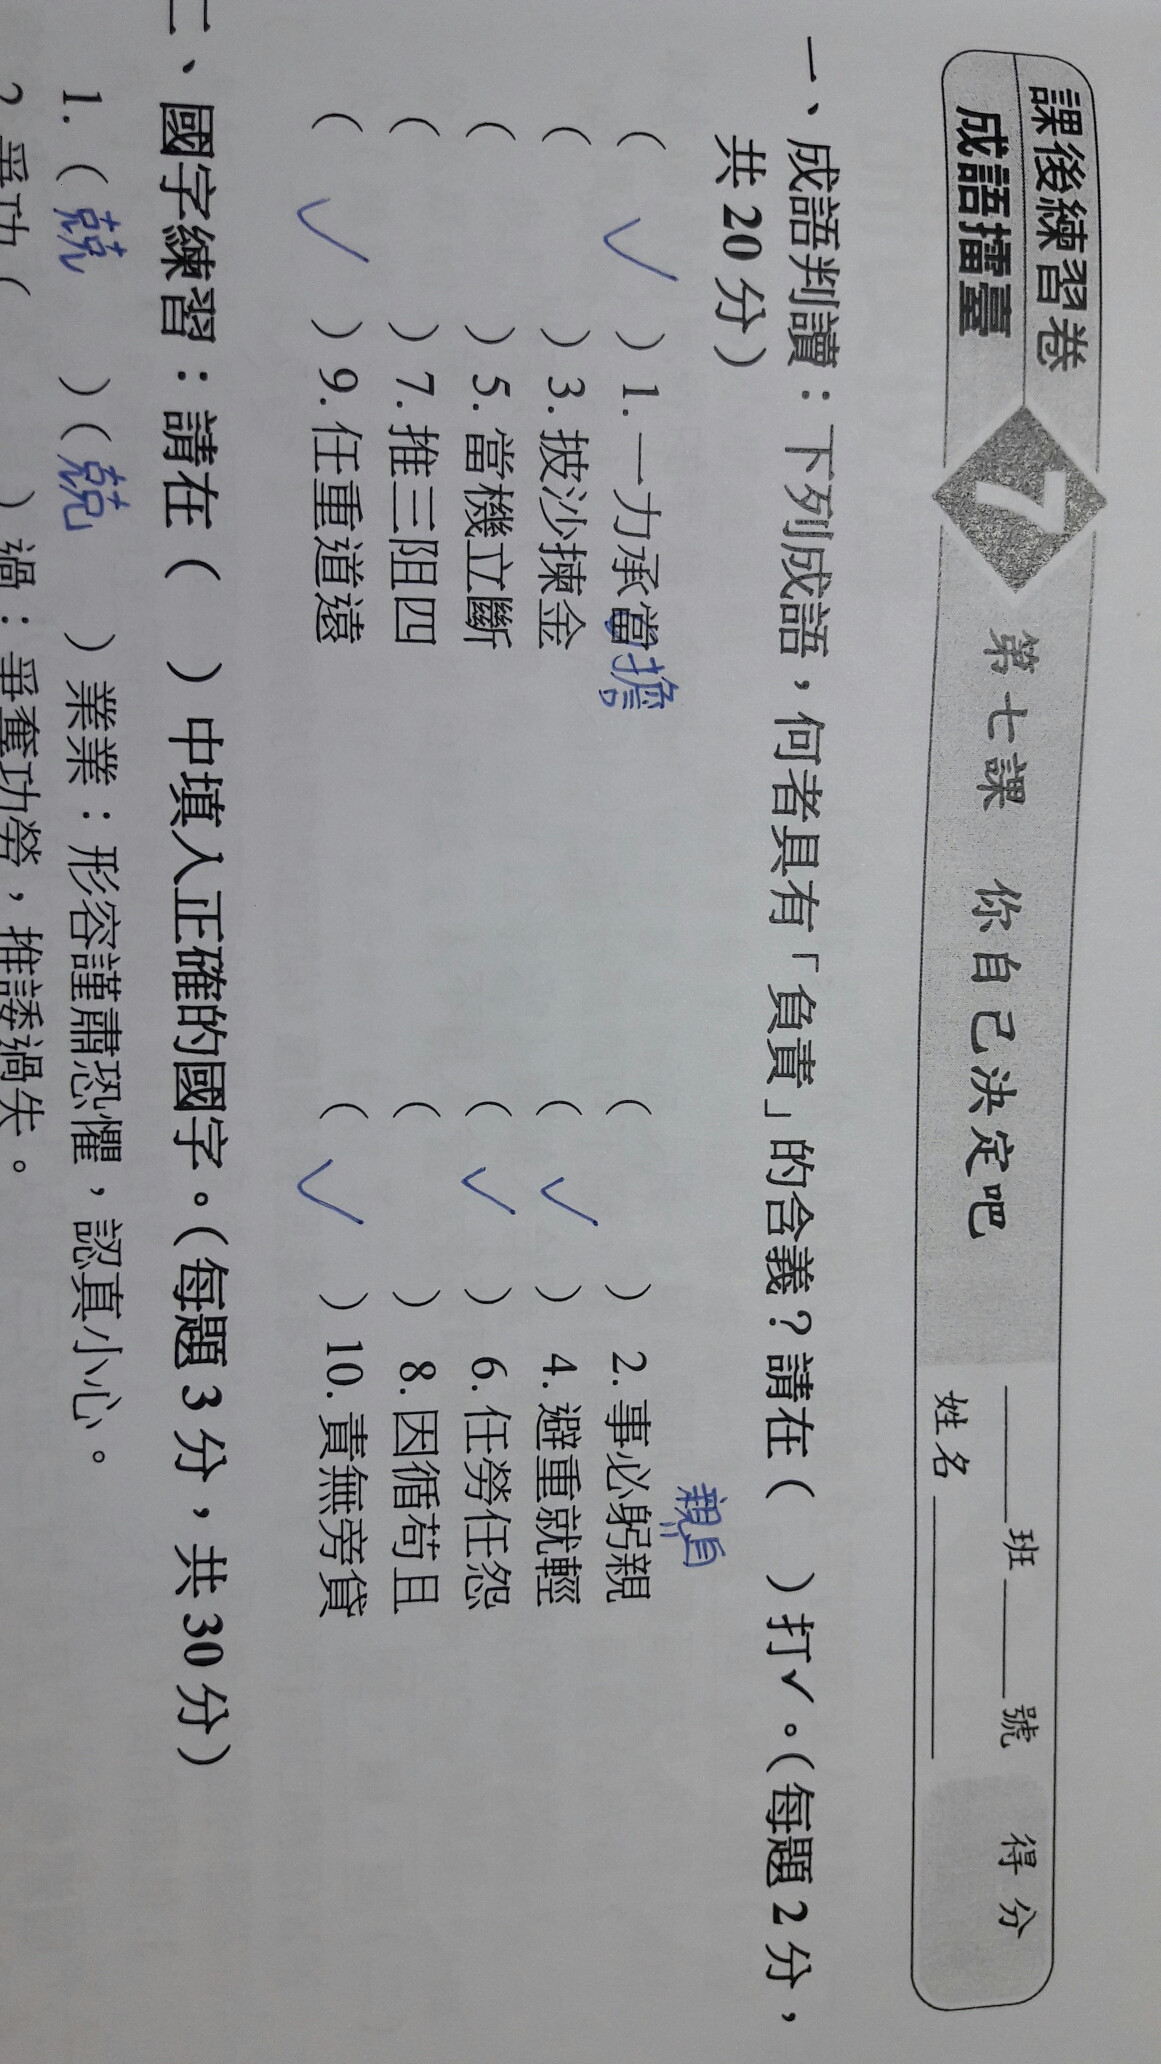 課後練習卷
成語擂臺
7
第七課 你自己決定吧
班 號
姓名
得分
一、成語判讀：下列成語，何者具有「負責」的含義？請在( )打✓。(每題2分，
共20分)
親自
( ✓ ) 1. 一力承當擔 ( ) 2. 事必躬親
( ) 3. 披沙揀金 ( ✓ ) 4. 避重就輕
( ) 5. 當機立斷 ( ✓ ) 6. 任勞任怨
( ) 7. 推三阻四 ( ) 8. 因循苟且
( ✓ ) 9. 任重道遠 ( ✓ ) 10. 責無旁貸
二、國字練習：請在( )中填入正確的國字。(每題3分，共30分)
1. ( 兢 ) ( 兢 ) 業業：形容謹肅恐懼，認真小心。
2. 爭功( )過：爭奪功勞，推諉過失。